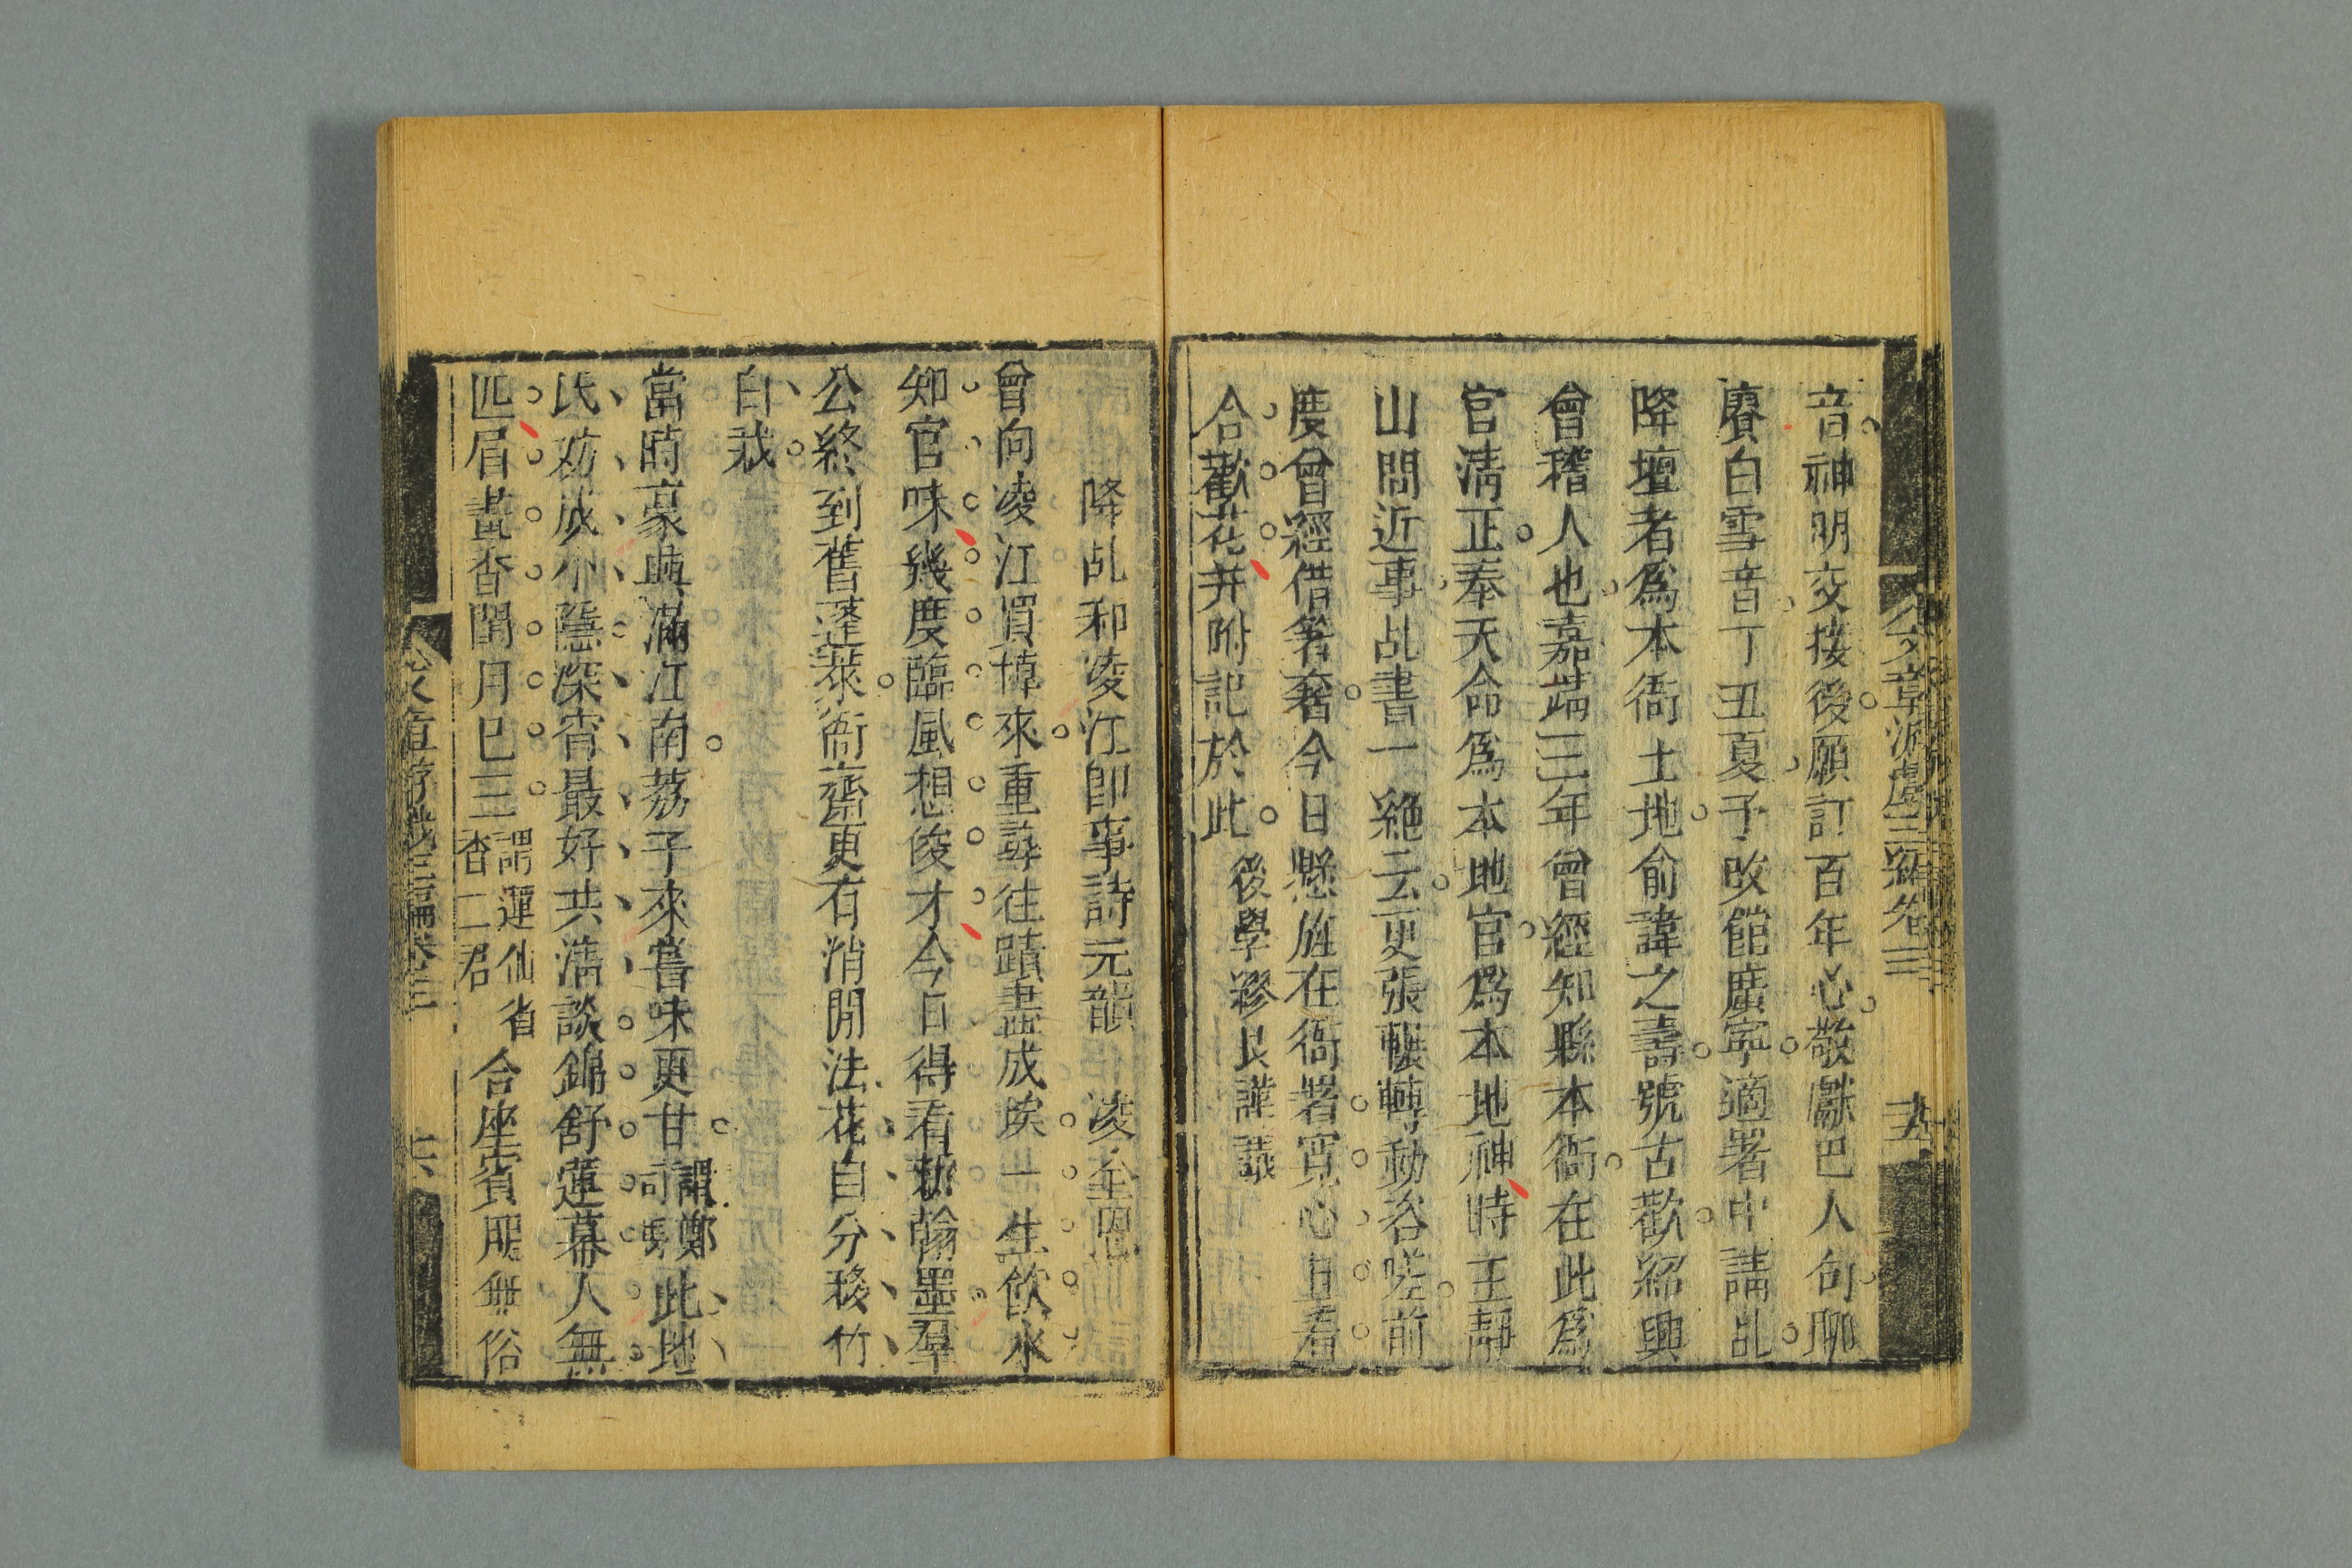 音神明交接後願訂百年心敬獻巴人句聊
賡白雪音丁丑夏予改館廣寧適署中請乩
降壇者爲本衙土地俞諱之壽號古歡紹興
會稽人也嘉靖三年曾經知縣本衙在此爲
官清正奉天命爲本地官爲本地神時王靜
山問近事乩書一絕云更張輾轉動咨嗟前
度曾經借箸奢今日懸旌在衙署寬心且看
合歡花并附記於此後學繆艮謹識
降乩和凌江即事詩元韻 凌全恩
曾向凌江買棹來重尋往蹟盡成埃一生飲水
知官味幾度臨風想俊才今日得看新翰墨羣
公終到舊蓬萊衙齋更有消閒法花自分移竹
自栽
當時豪興滿江南荔子來嘗味更甘謂鄭司馬此地
氏苏成小隱深宵最好共清談錦舒蓮幕人無
匹眉畫杏閨月已三謂蓮仙省杏二君合座賓朋無俗
文章游戲三編卷三
十五
文章游戲三編卷三
十六